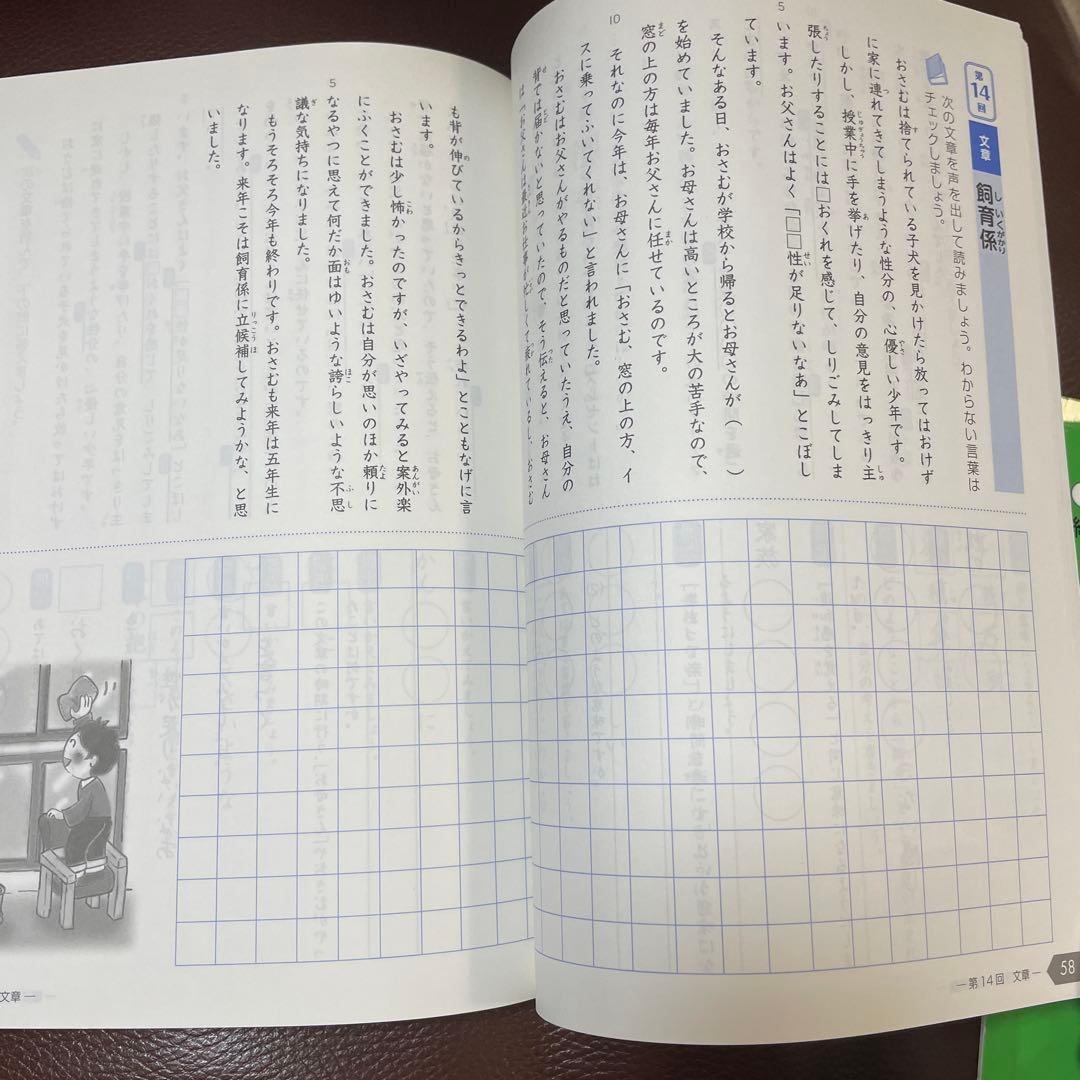 第14回 文章 飼育係
次の文章を声を出して読みましょう。わからない言葉は
チェックしましょう。
おさむは捨てられている子犬を見かけたら放ってはおけず
に家に連れてきてしまうような性分の、心優しい少年です。
しかし、授業中に手を挙げたり、自分の意見をはっきり主
張したりすることには□おくれを感じて、しりごみしてしま
います。お父さんはよく「□□性が足りないなあ」とこぼし
ています。
そんなある日、おさむが学校から帰るとお母さんが（　　）
を始めていました。お母さんは高いところが大の苦手なので、
窓の上の方は毎年お父さんに任せているのです。
それなのに今年は、お母さんに「おさむ、窓の上の方、イ
スに乗ってふいてくれない」と言われました。
おさむはお父さんがやるものだと思っていたうえ、自分の
背では届かないと思っていたので、そう伝えると、お母さん
も背が伸びているからきっとできるわよ」とこともなげに言
います。
おさむは少し怖かったのですが、いざやってみると案外楽
にふくことができました。おさむは自分が思いのほか頼りに
なるやつに思えて何だか面はゆいような誇らしいような不思
議な気持ちになりました。
もうそろそろ今年も終わりです。おさむも来年は五年生に
なります。来年こそは飼育係に立候補してみようかな、と思
いました。
5
10
5
―第14回 文章―
58
文章―